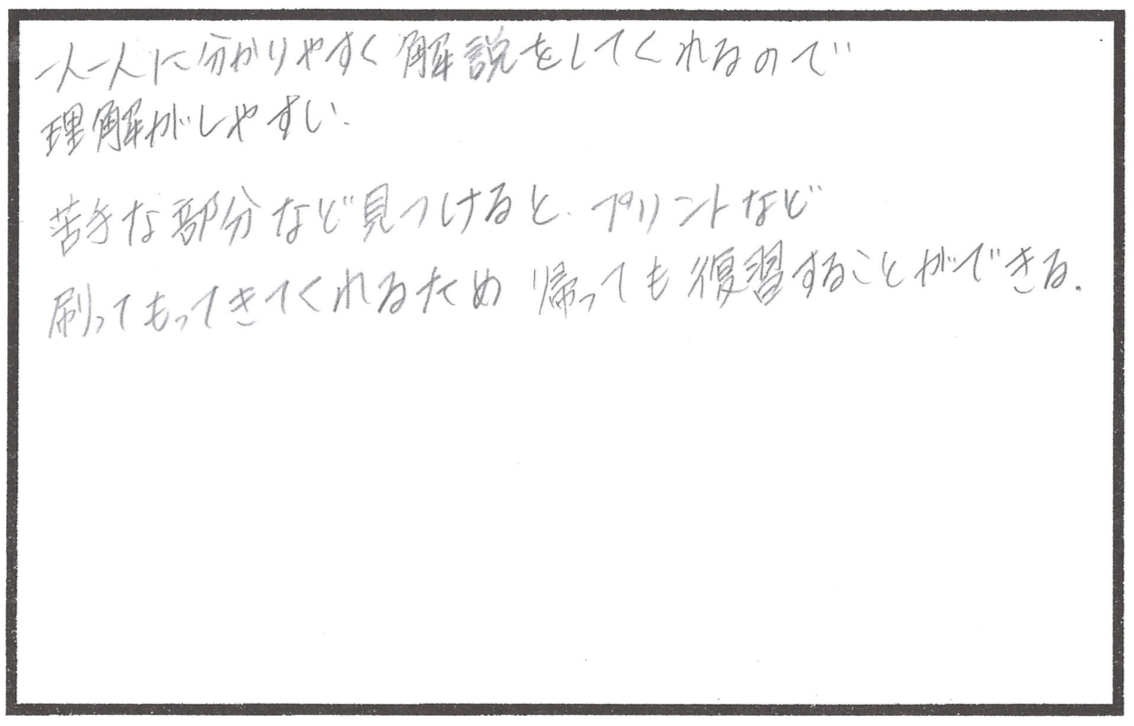 一人一人に分かりやすく解説をしてくれるので
理解がしやすい.
苦手な部分など見つけると、プリントなど
刷ってもってきてくれるため 帰っても復習することができる.